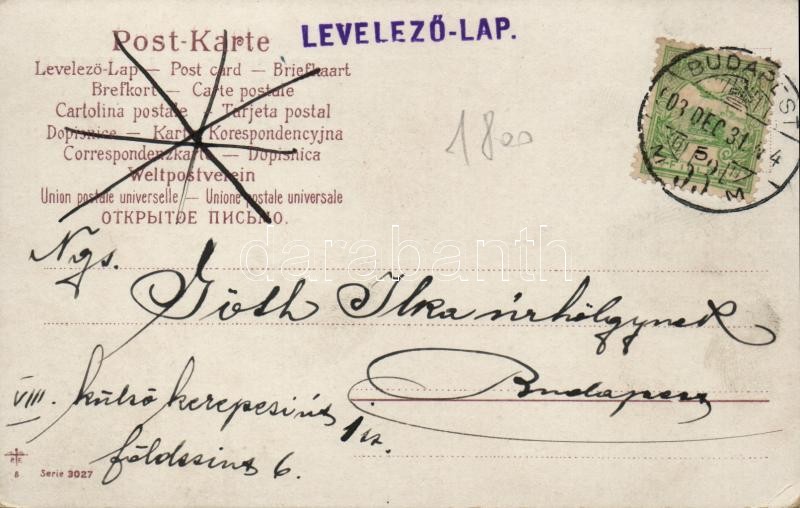 Post-Karte
LEVELEZŐ-LAP.
Levelező-Lap — Post card — Briefkaart
Brefkort — Carte postale
Cartolina postale — Tarjeta postal
Dopisnice — Karta Korespondencyjna
Correspondenzkarte — Dopisnica
Weltpostverein
Union postale universelle — Unione postale universale
ОТКРЫТОЕ ПИСЬМО.
1800
BUDAPEST
03 DEC 31
M
darabanth
Ngs.
Góth Ilka úrhölgynek
Budapest
VIII. külső kerepesi út 1 sz.
földszint 6.
Serie 3027